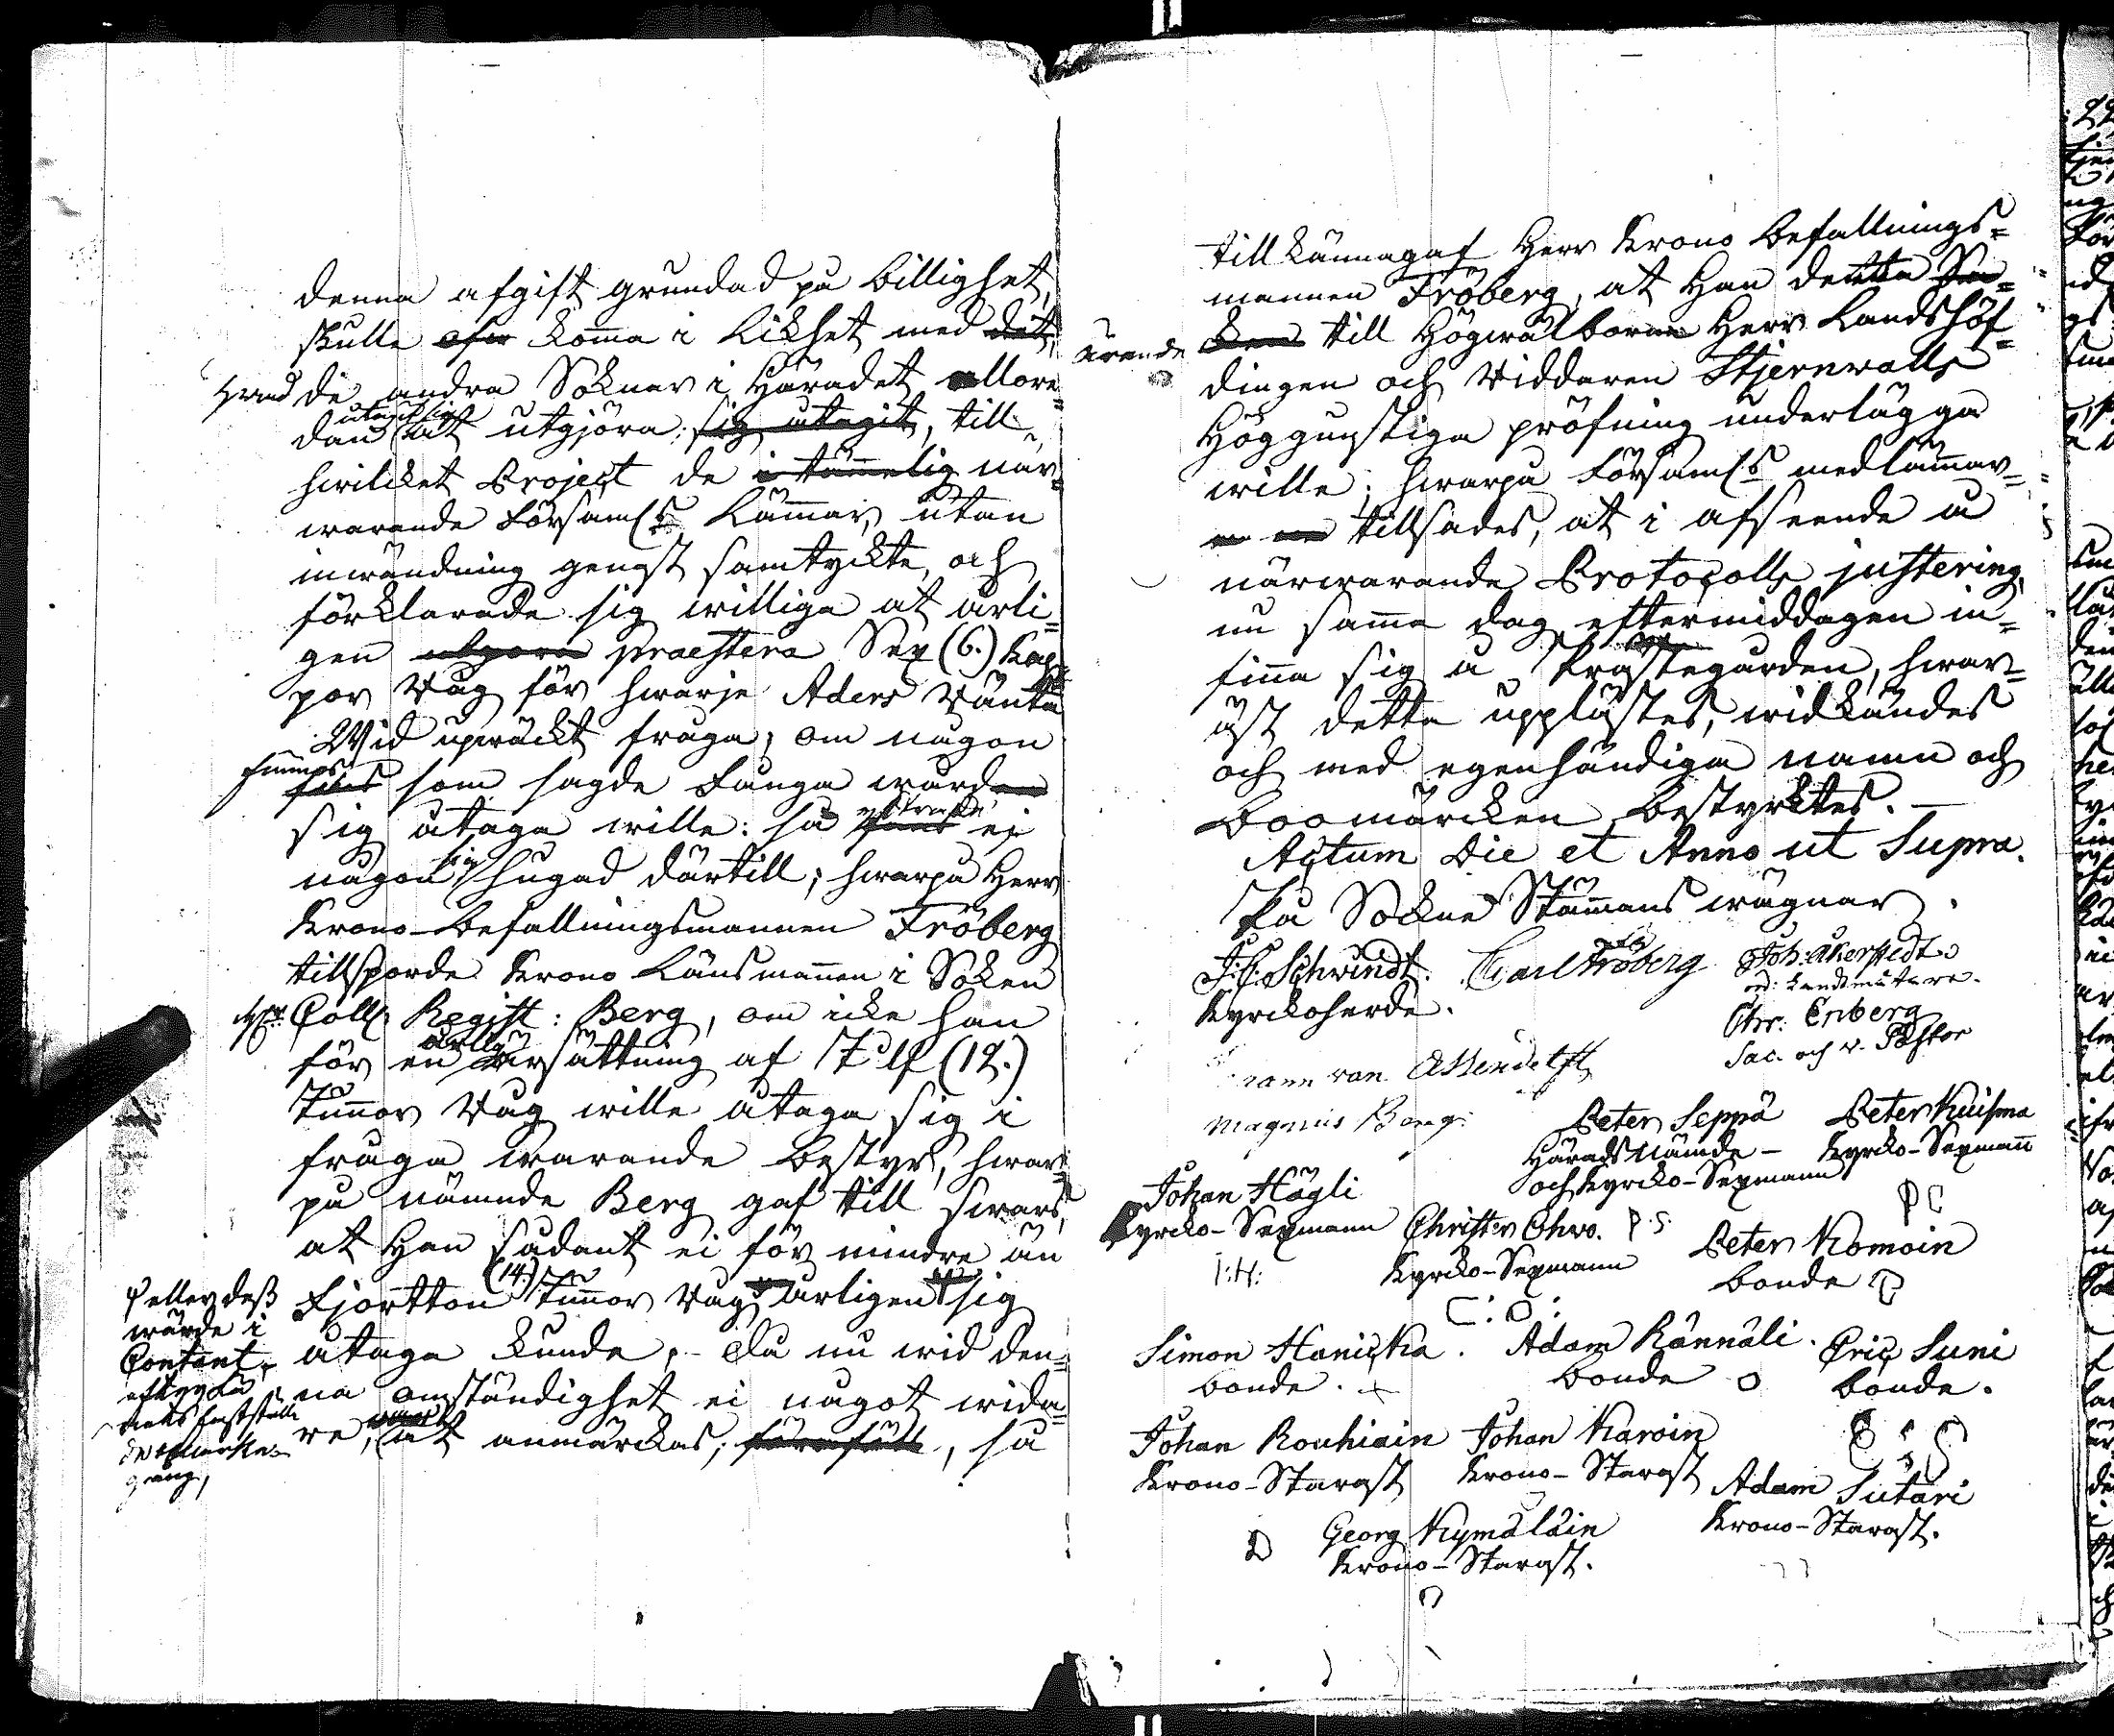 denna afgift grundad på billighet,
skulle komma i Likhet med
hwad de andra Soknar i Häradet allare-
dan utagit sig at utgjöra; sig utagit, till
hwilcket Project de i tämmelig när-
warande Församl:s Lämmar, utan
inwändning genast samtyckte, och
förklarade sig willige at årli-
gen utgöra praestera Sex (6.) Kap-
par Råg för hwarje Aders Ränta
Wid upwäckt fråga, om någon
finnes som sagde Fånga wård
sig åtaga wille: så yttrade ej
någon sig hugad därtill; hwarpå Herr
Krono-Befallningsmannen Fröberg
tillsporde Krono Länsmannen i Soknen
Coll: Regist: Berg, om icke han
för en årlig ersättning af Tolf (12.)
Tunnor Råg wille åtaga sig i
fråga warande bestyr, hwar-
på nämnde Berg gaf till swars,
at Han sådant ei för mindre än
Fjortton (14.) Tunnor Råg årligen sig
åtaga kunde, - Då nu wid den-
na omständighet ei något wida-
re, at anmärckas; förefäll, så
eller dess
wärde i
Contant,
efter
till kännagaf Herr Krono Befallnings-
mannen Fröberg, at Han detta
ärende till Högwälborne Herr Landshöf-
dingen och Riddaren Stjernwalls
Höggunstiga pröfning underlägga
wille; hwarpå Församl:s medlämmar-
ne tillsades, at i afseende å
närwarande Protocolls justering,
nu samma dag eftermiddagen in-
finna sig å Prostegården, hwar-
äst detta upplästes, widkändes
och med egenhändiga namn och
Boomärcken bestyrktes. —
Actum Die et Anno ut Supra.
På Sockne Stämmans wägnar.
J: C: Schwindt.
Kyrckoherde.
Carl Fröberg
Joh: Åkerstedt
ord: Landtmätare.
Chr: Enberg
Sac. och v. Pastor
van Assendelft
Magnus Berg.
Peter Seppä
Härads Nämnde-
och Kyrcko-Sexmann
P. S.
Peter Kuisma
Kyrcko-Sexmann
P C
Johan Hägli
Kyrcko-Sexmann
I: H:
Christer Ohvo.
Kyrcko-Sexmann
C: O:
Peter Komoin
bonde
Simon Hanicka.
bonde.
Adam Rännäli.
bonde
Eric Suni
bonde.
E: S
Johan Rouhiain
Krono-Starast
Johan Karoin
Krono-Starast
Adam Sutari
Krono-Starast.
Georg Kymäläin
Krono-Starast.